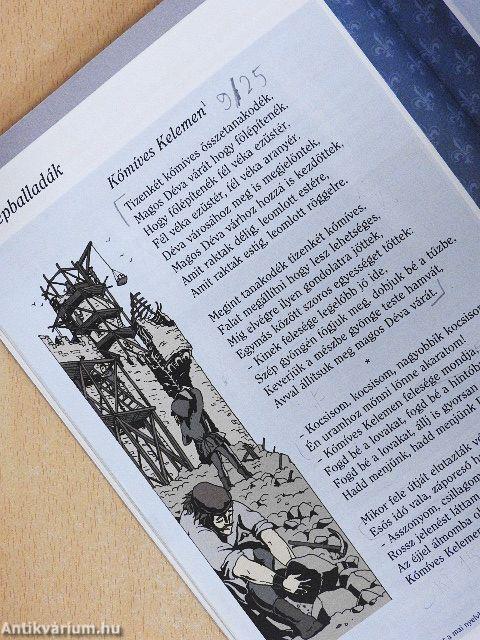 épballadák
Kőmíves Kelemen¹
9/25
Tizenkét kőmíves összetanakodék,
Magos Déva várát hogy fölépítenék.
Hogy fölépítenék fél véka ezüstér,
Fél véka ezüstér, fél véka aranyér.
Déva városához meg is megjelöntek,
Magos Déva várhoz hozzá is kezdöttek,
Amit raktak délig, leomlott estére,
Amit raktak estig, leomlott röggelre.
Megint tanakodék tizenkét kőmíves,
Falat megállítni hogy lesz lehetséges,
Míg elvégre ilyen gondolatra jöttek,
Egymás között szoros egyességöt töttek:
- Kinek felesége legdőbb jő ide,
Szép gyöngén fogjuk meg, dobjuk bé a tűzbe,
Keverjük a mészbe gyönge teste hamvát,
Avval állítsuk meg magos Déva várát.
*
- Kocsisom, kocsisom, nagyobbik kocsisom
Én uramhoz mönni lönne akaratom!
- Kőmíves Kelemen felesége mondja,
Fogd bé a lovakat, fogd bé a hintóba
Fogd bé a lovakat, állj is gyorsan
Hadd menjünk, hadd menjünk
Mikor fele útját elutazták vó
Esős idő vala, záporeső h
- Asszonyom, csillagom
Rossz jelenést láttam
Az éjjel álmomba ol
Kőmíves Kelemen
a mai nyelv
Antikvárium.hu